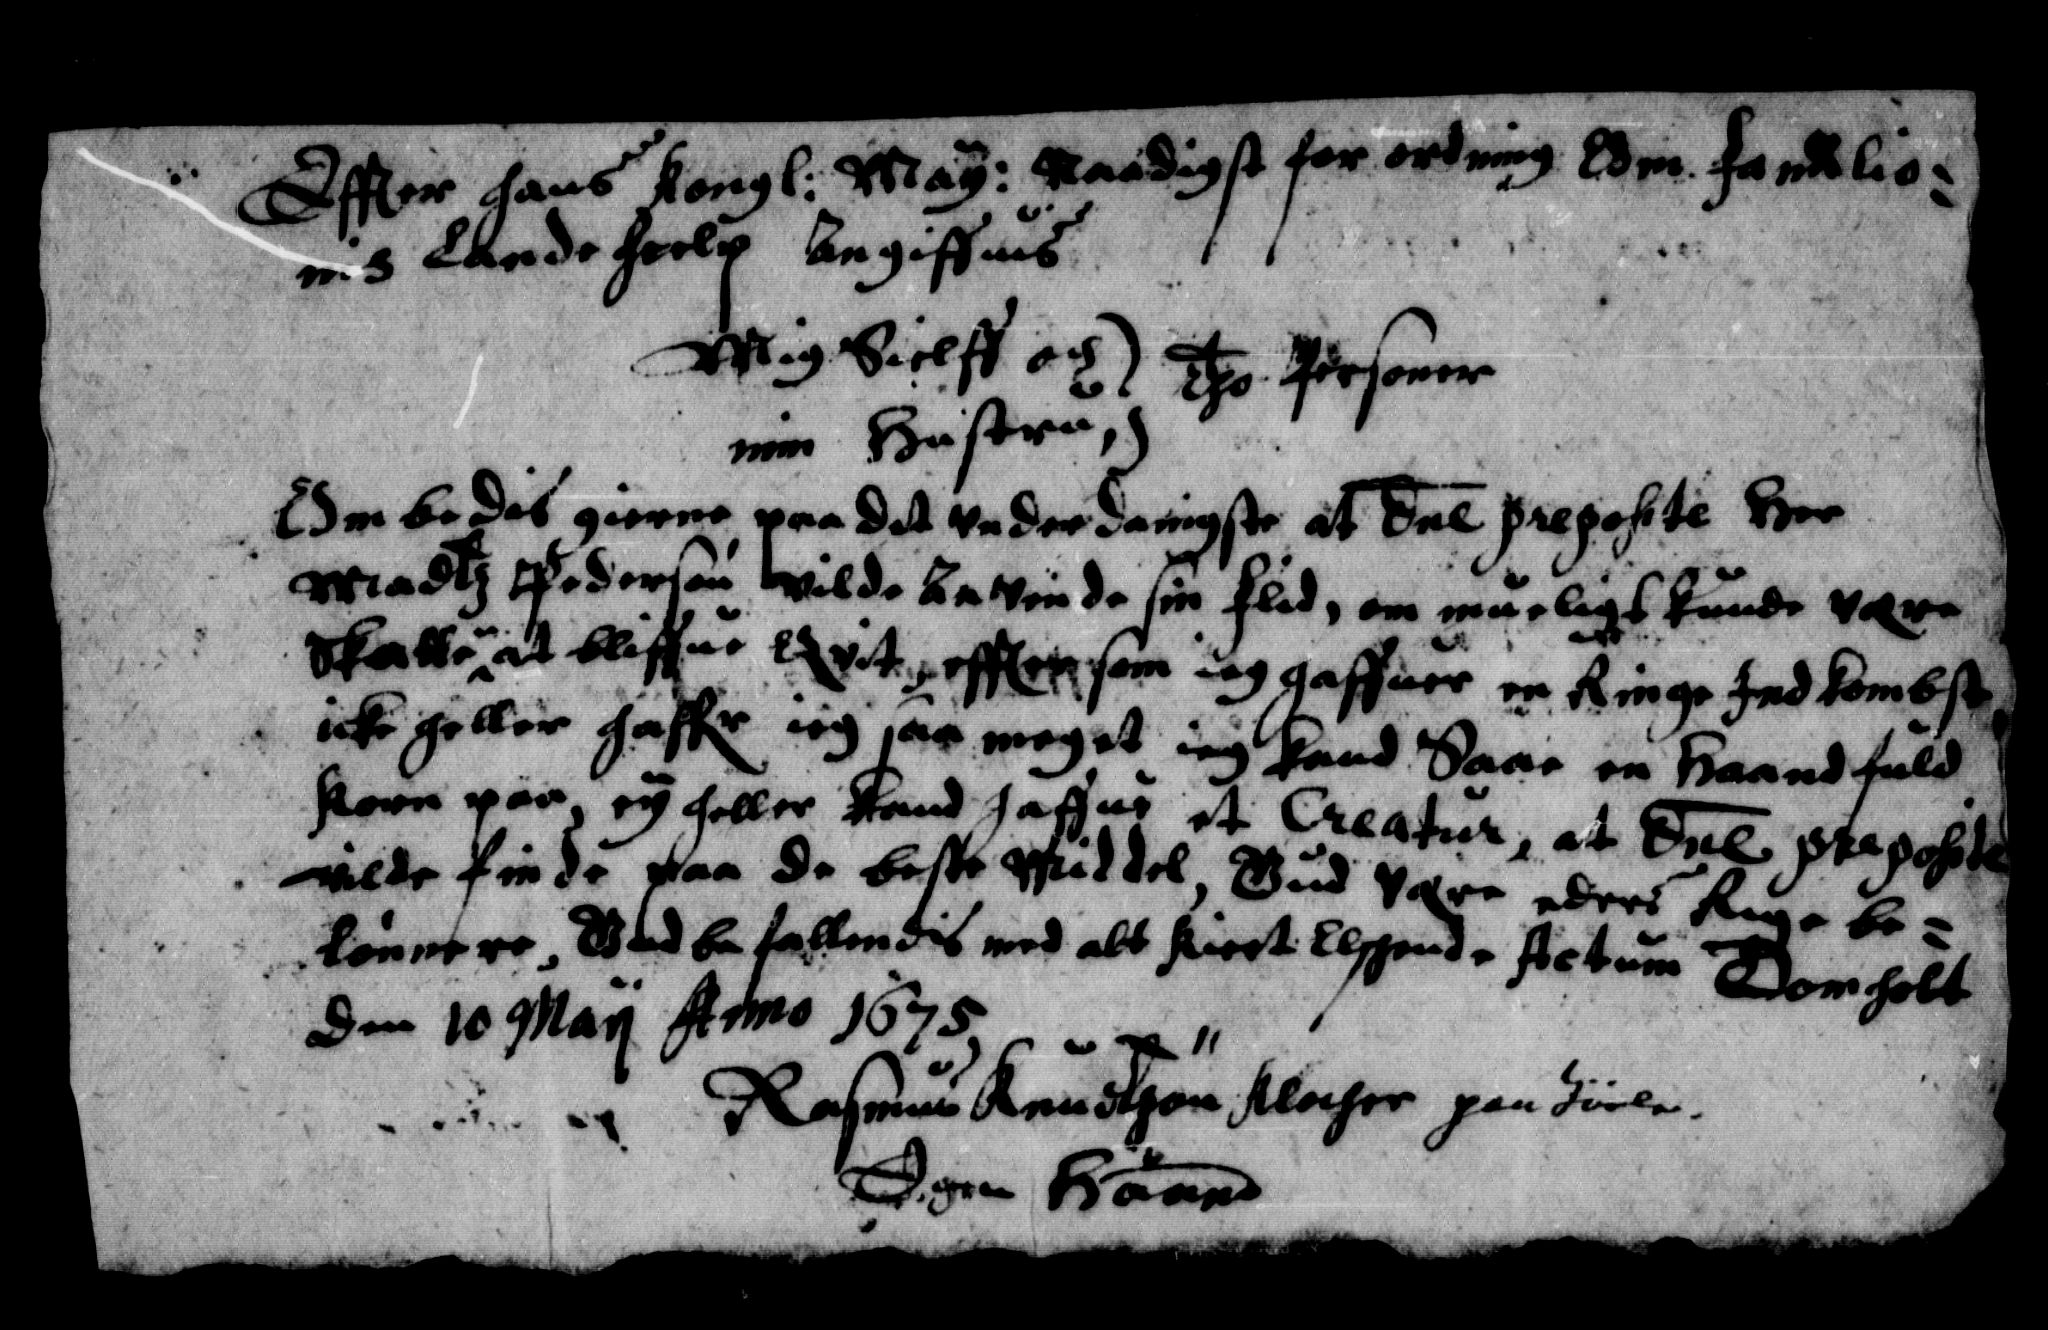 Effter hans Kongl: Maÿ: Naadigst forordning Om familie=
nis Lande hielp Angiffuis
Mig Sielff och } tho Personer
min Hustru,
Ombedis gierne paa det underdanigste at Dnē præposite Her
Madtz Pedersøn wilde Anvende sin flid, om mueligt kunde være
Skatten at bliffue qvit, effter som ieg haffuer en Ringe Indkombst
icke heller haffr ieg saa meget ieg kand Saae en Haandfuld
Korn paa, eÿ heller kand haffue et Creatur, at Dnē præposite
wilde finde paa de beste Middel, Gud være eders Rige be=
lønnere, Gud befallendis med alt kiert Actum Domholt
Den 10 Maÿ Anno 1675,
Rasmus Knudtzøn Klocher paa
Egen Haand